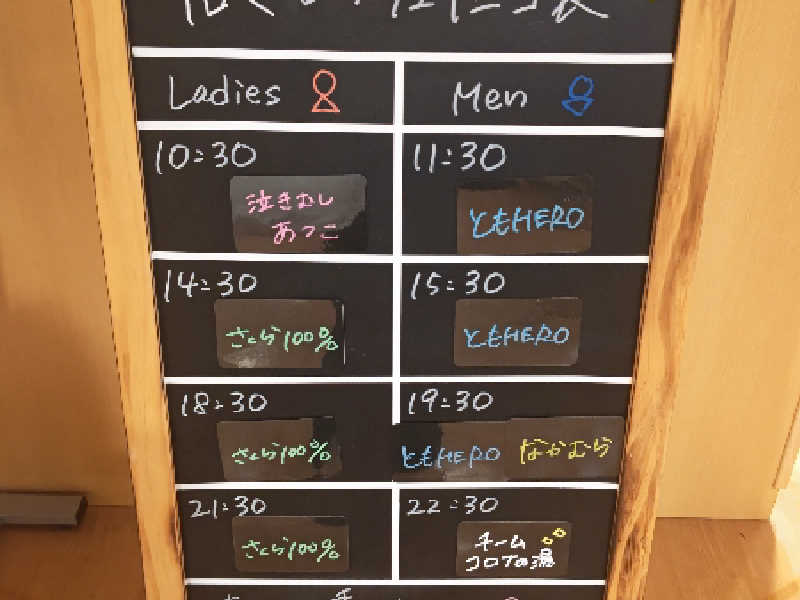 Ladies Men
10:30 11:30
泣きむし
あつこ
ともHERO
14:30 15:30
さくら100% ともHERO
18:30 19:30
さくら100% ともHERO なかむら
21:30 22:30
さくら100%
チーム
コロナの湯